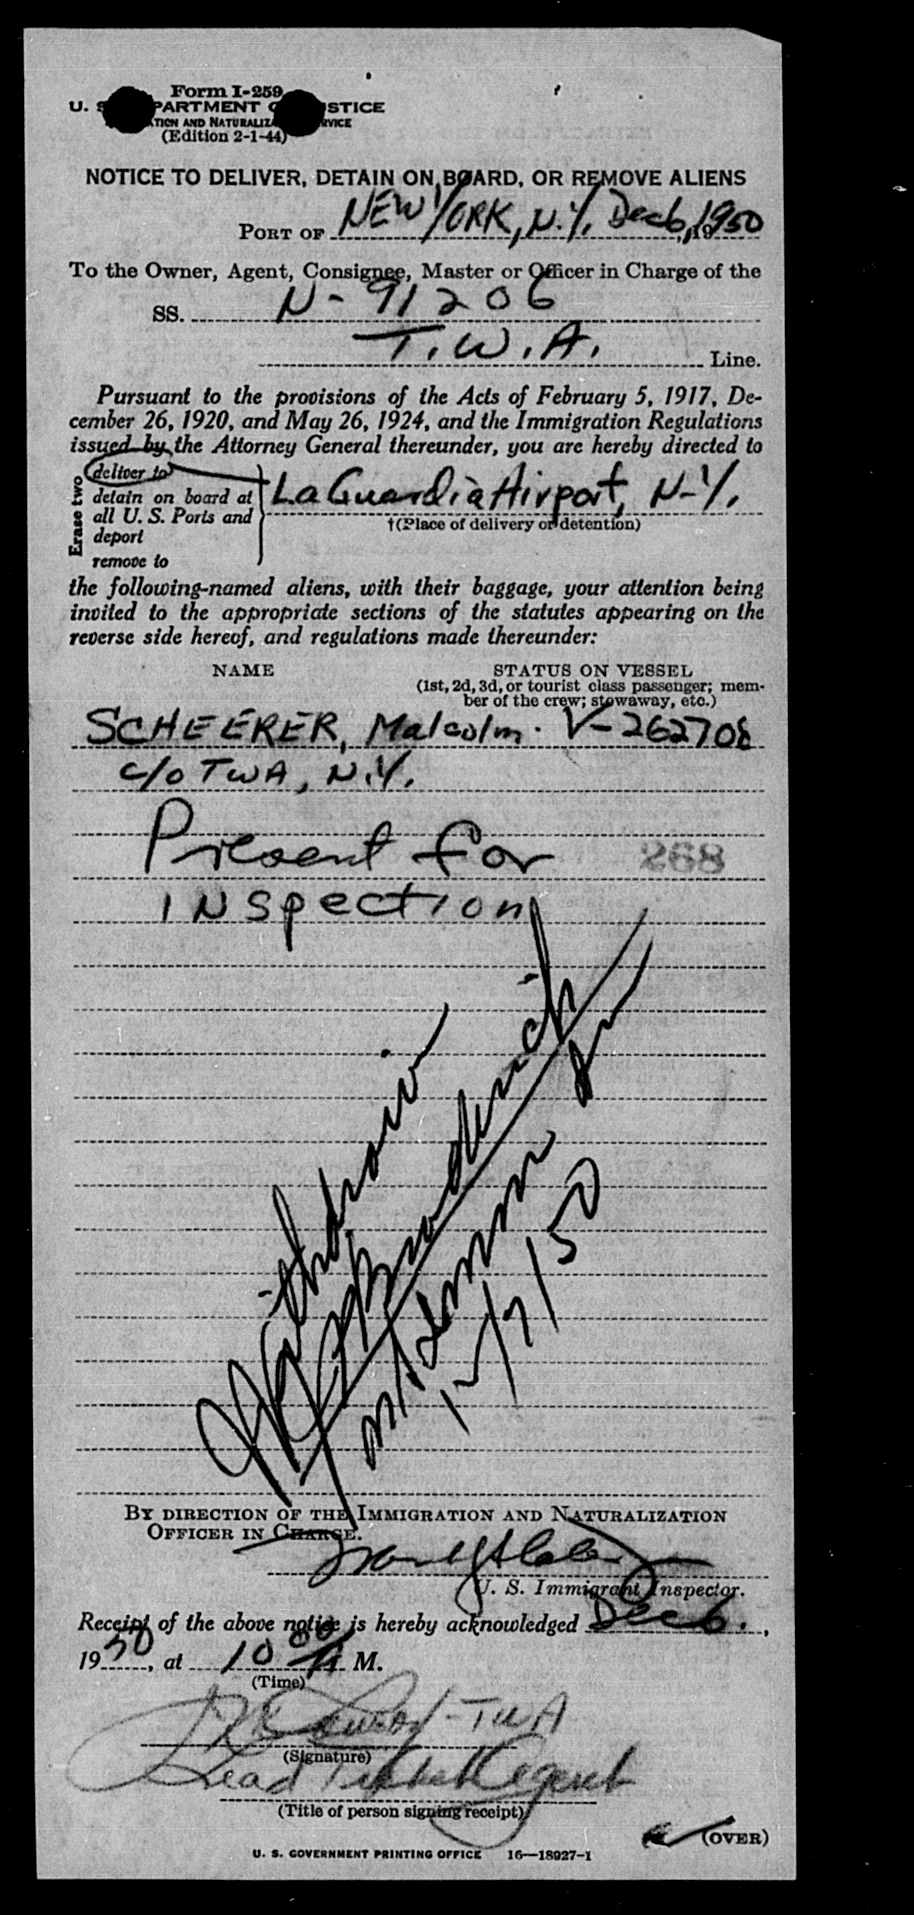 Form I-259
U. S. DEPARTMENT OF JUSTICE
IMMIGRATION AND NATURALIZATION SERVICE
(Edition 2-1-44)
NOTICE TO DELIVER, DETAIN ON BOARD, OR REMOVE ALIENS
PORT OF NEW YORK, N.Y. Dec 6, 1950
To the Owner, Agent, Consignee, Master or Officer in Charge of the
SS. N-91206
T.W.A. Line.
Pursuant to the provisions of the Acts of February 5, 1917, De-
cember 26, 1920, and May 26, 1924, and the Immigration Regulations
issued by the Attorney General thereunder, you are hereby directed to
Erase two
deliver to
detain on board at
all U. S. Ports and
deport
remove to
La Guardia Airport, N.Y.
†(Place of delivery or detention)
the following-named aliens, with their baggage, your attention being
invited to the appropriate sections of the statutes appearing on the
reverse side hereof, and regulations made thereunder:
NAME STATUS ON VESSEL
(1st, 2d, 3d, or tourist class passenger; mem-
ber of the crew; stowaway, etc.)
SCHEERER, Malcolm. V-262708
c/o TWA, N.Y.
Present for 268
INSpection
Withdrawn
12/7/50
BY DIRECTION OF THE IMMIGRATION AND NATURALIZATION
OFFICER IN CHARGE.
U. S. Immigrant Inspector.
Receipt of the above notice is hereby acknowledged Dec 6.,
1950, at 10 00 A M.
(Time)
-TWA
(Signature)
Lead Ticket Agent
(Title of person signing receipt)
(OVER)
U. S. GOVERNMENT PRINTING OFFICE 16—18927-1